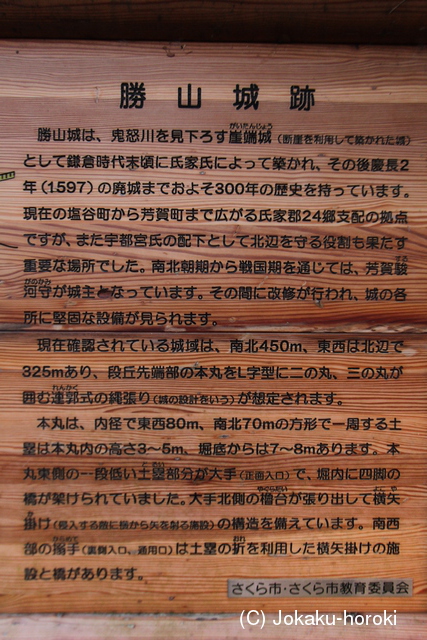 勝山城跡
勝山城は、鬼怒川を見下ろす崖端城（断崖を利用して築かれた城）
として鎌倉時代末頃に氏家氏によって築かれ、その後慶長2
年（1597）の廃城までおよそ300年の歴史を持っています。
現在の塩谷町から芳賀町まで広がる氏家郡24郷支配の拠点
ですが、また宇都宮氏の配下として北辺を守る役割も果たす
重要な場所でした。南北朝期から戦国期を通じては、芳賀駿
河守が城主となっています。その間に改修が行われ、城の各
所に堅固な設備が見られます。
現在確認されている城域は、南北450m、東西は北辺で
325mあり、段丘先端部の本丸をL字型に二の丸、三の丸が
囲む連郭式の縄張り（城の設計をいう）が想定されます。
本丸は、内径で東西80m、南北70mの方形で一周する土
塁は本丸内の高さ3〜5m、堀底からは7〜8mあります。本
丸東側の一段低い土塁部分が大手（正面入口）で、堀内に四脚の
橋が架けられていました。大手北側の櫓台が張り出して横矢
掛け（侵入する敵に横から矢を射る施設）の構造を備えています。南西
部の搦手（裏側入口、通用口）は土塁の折を利用した横矢掛けの施
設と橋があります。
さくら市・さくら市教育委員会
(C) Jokaku-horoki